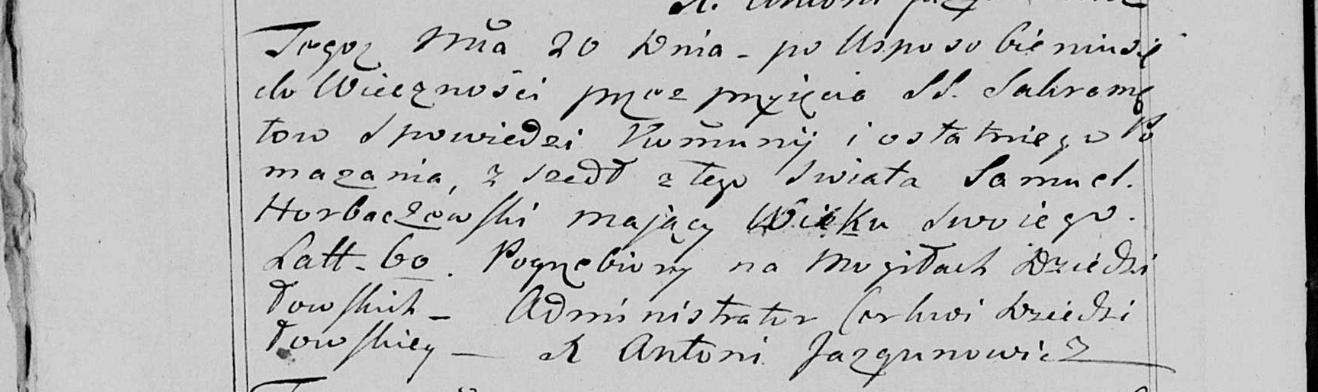 Tegoż Mca 20 Dnia - po Usposobieniu się
do Wieczności przez przyięcie SS. Sakramę
tow Spowiedzi Kom̃unij i ostatniego Po
mazania, z szedł z tego Swiata Samuel.
Horbaczewski maiący Wieku Swoiego.
Latt - 60. Pogrzebiony na Mogiłach Dziedzi
łowskich - Administrator Cerkwi Dziedzi
łowskiey - X Antoni Jazgunowicz